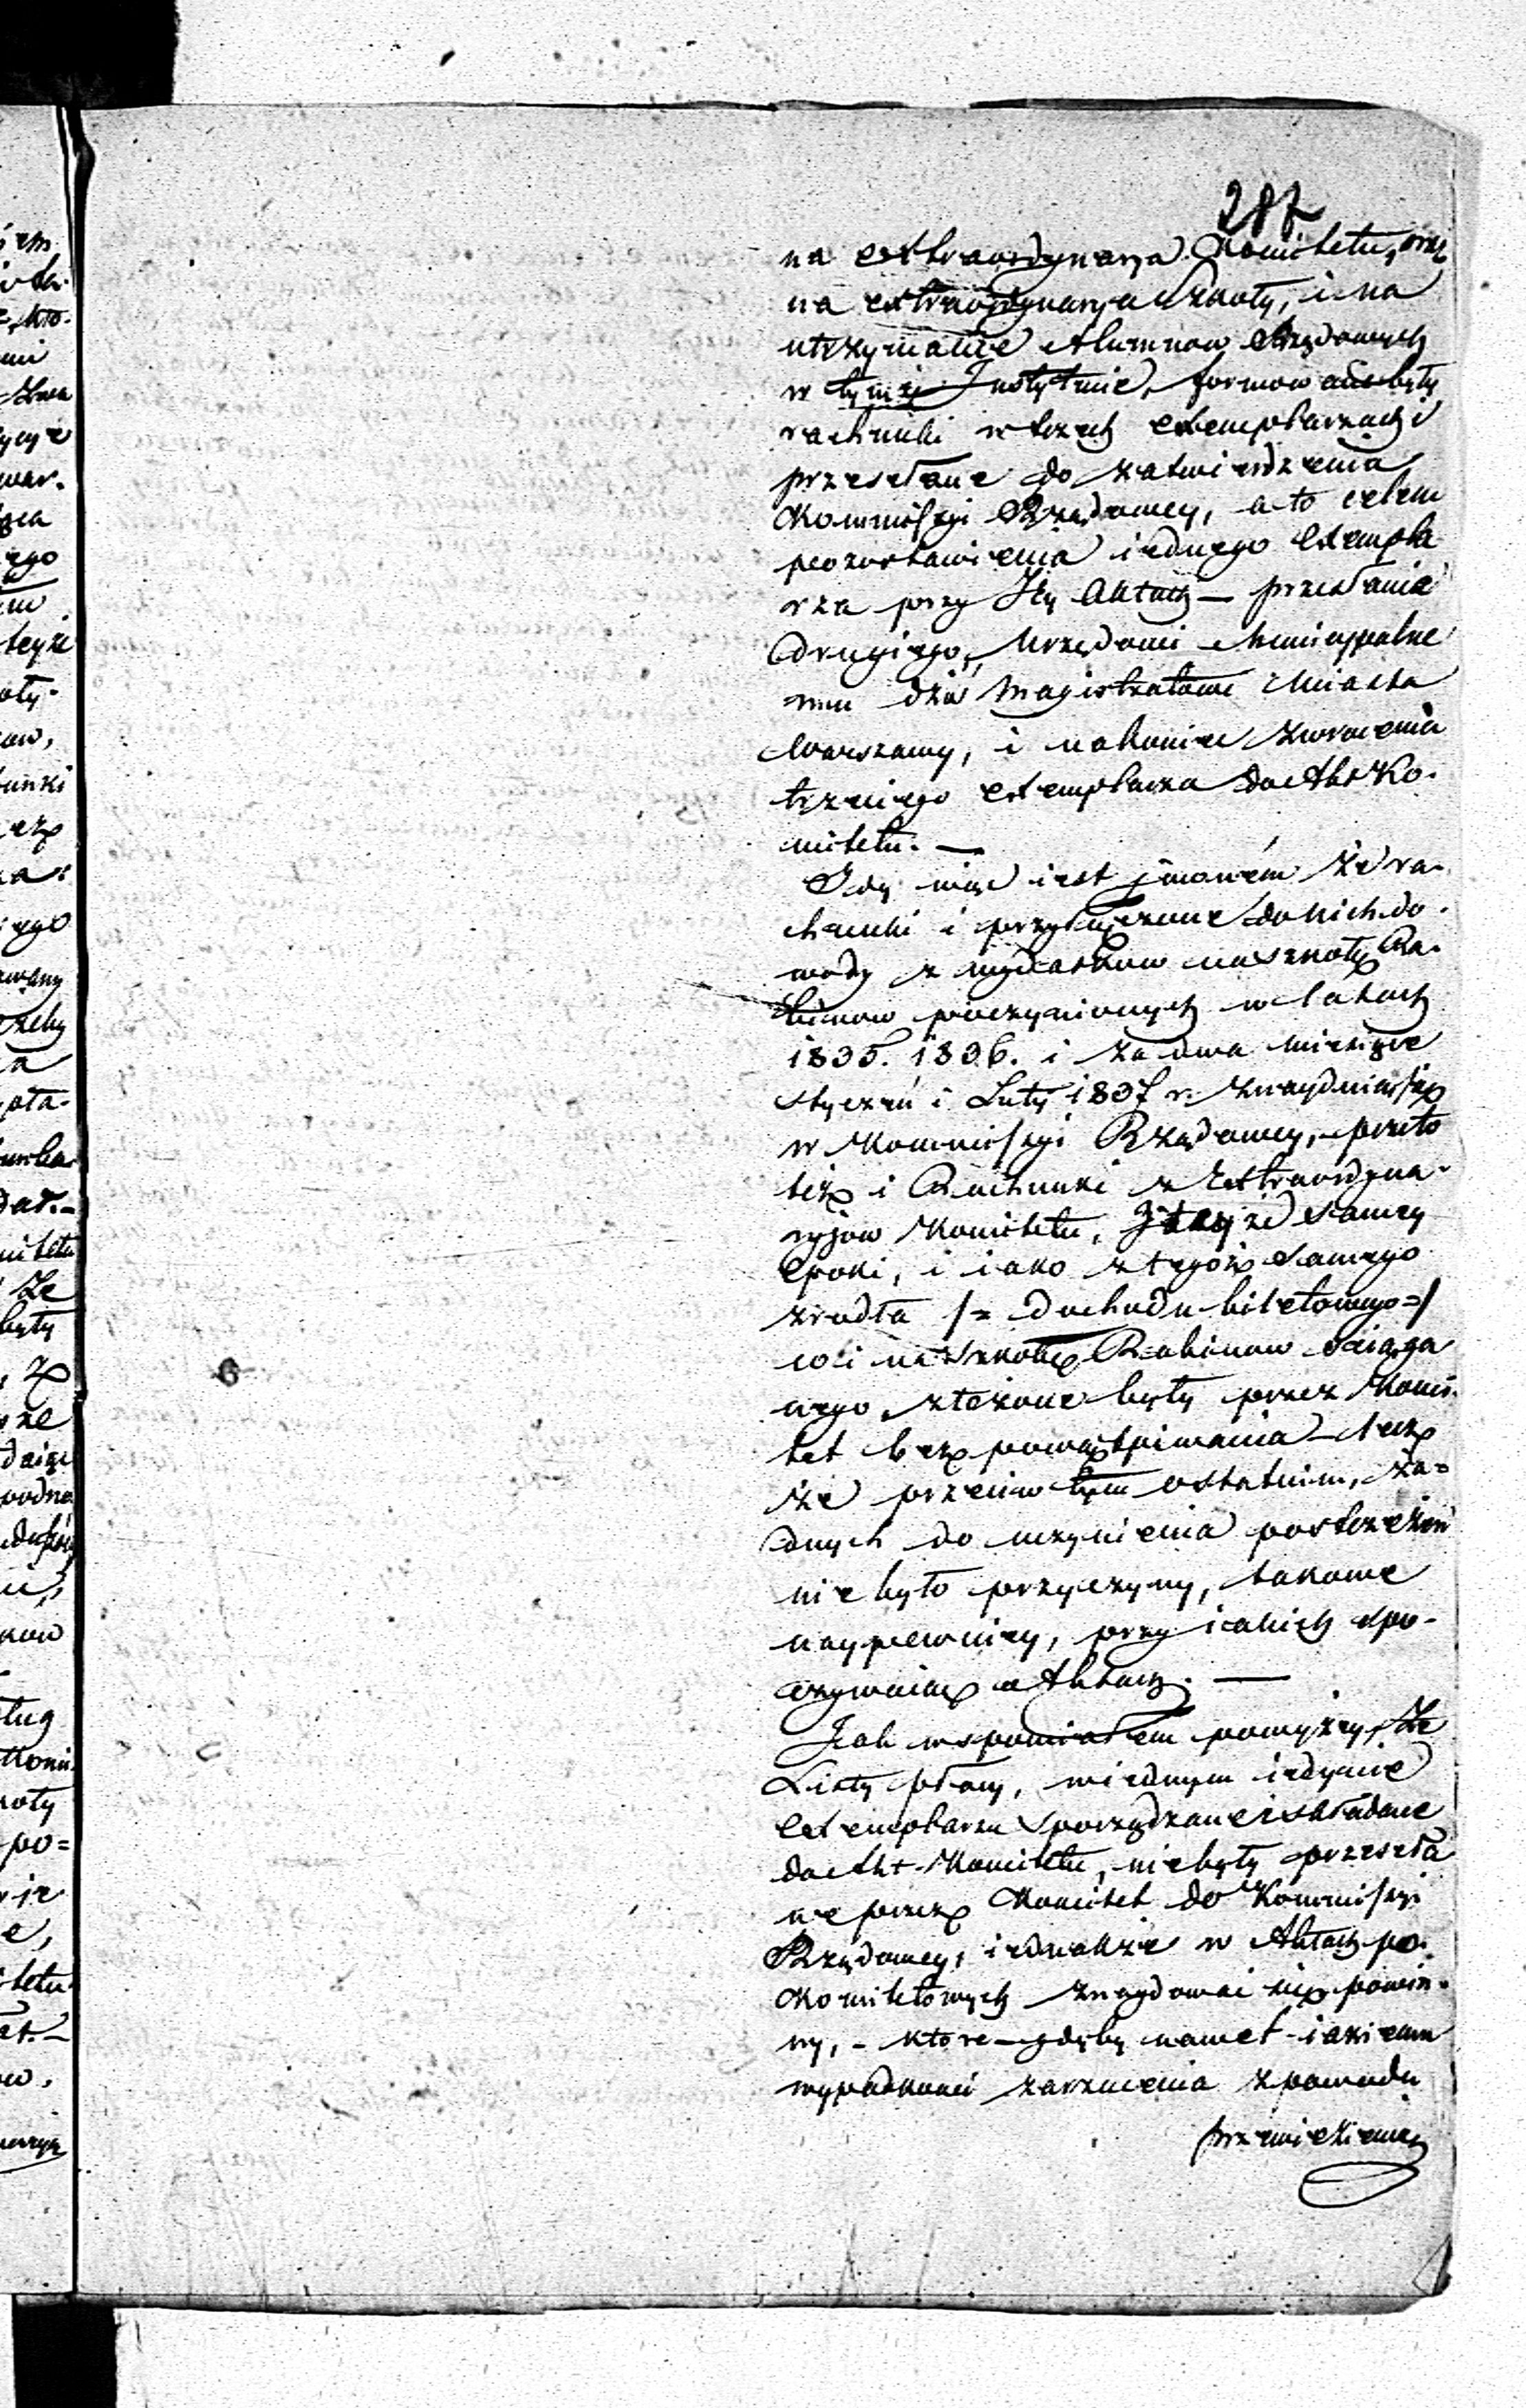 287
na extraordynarja Komitetu, oraz
na extraordynarja Szkoły, i na
utrzymanie Alumnow Rządowych
w tymże Instytucie, formowane były
rachunki w trzech exemplarzach i
przesełane do zatwierdzenia
Kommissyi Rządowey, a to celem
pozostawienia iednego exempla
rza przy Jey Aktach — przesłania
drugiego, Urzędowi Municypalne
mu dziś Magistratowi Miasta
Warszawy, i nakoniec zwrócenia
trzeciego exemplarza do Akt Ko-
mitetu. —
Gdy więc iest pewném że ra-
chunki i przyłączone do nich do-
wody z wydatkow na szkołę Ra-
binow poczynionych w latach
1835. 1836. i za dwa miesiące
Styczeń i Luty 1837 r. znayduią się
w Kommissyi Rządowey, przeto
też i Rachunki z Extraordyna-
ryjow Komitetu, z teyże samey
epoki, i iako z tegoż samego
zrodła /= dochodu biletowego =/
co i na szkołę Rabinow ściąga
nego, złożone były przez Komi-
tet bez powątpiwania — lecz
że przeciw tym ostatnim, ża=
dnych do uczynienia postrzeżeń
nie było przyczyny, takowe
naypewniey, przy iakich spo-
czywaią Aktach. —
Jak wspomiałem powyżey, że
Listy płacy, w iednym iedynie
exemplarzu sporządzane i składane
do Akt Komitetu, nie były przeseła
ne przez Komitet do Kommissyi
Rządowey, iednakże w Aktach po-
Komitetowych znaydować się powin-
ny, - ktore - gdyby nawet iakiemu
wypadkowi zarzucenia z powodu
przewiezienia